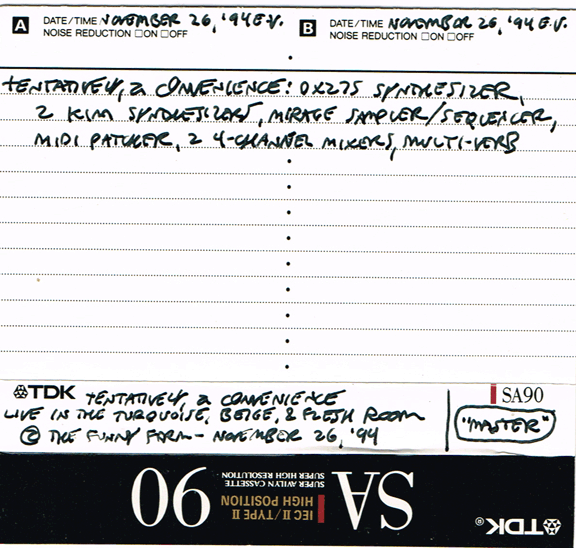 A DATE/TIME NOVEMBER 26, '94 E.V.
NOISE REDUCTION □ON □OFF
B DATE/TIME NOVEMBER 26, '94 E.V.
NOISE REDUCTION □ON □OFF
TENTATIVELY, A CONVENIENCE: OX275 SYNTHESIZER,
2 KIM SYNTHESIZERS, MIRAGE SAMPLER/SEQUENCER,
MIDI PATCHER, 2 4-CHANNEL MIXERS, MULTI-VERB
TDK TENTATIVELY, A CONVENIENCE
LIVE IN THE TURQUOISE, BEIGE, & FLESH ROOM
@ THE FUNNY FARM - NOVEMBER 26, '94
SA90
"MASTER"
TDK®
SA
IEC II/TYPE II
HIGH POSITION
SUPER AVILYN CASSETTE
SUPER HIGH RESOLUTION
90